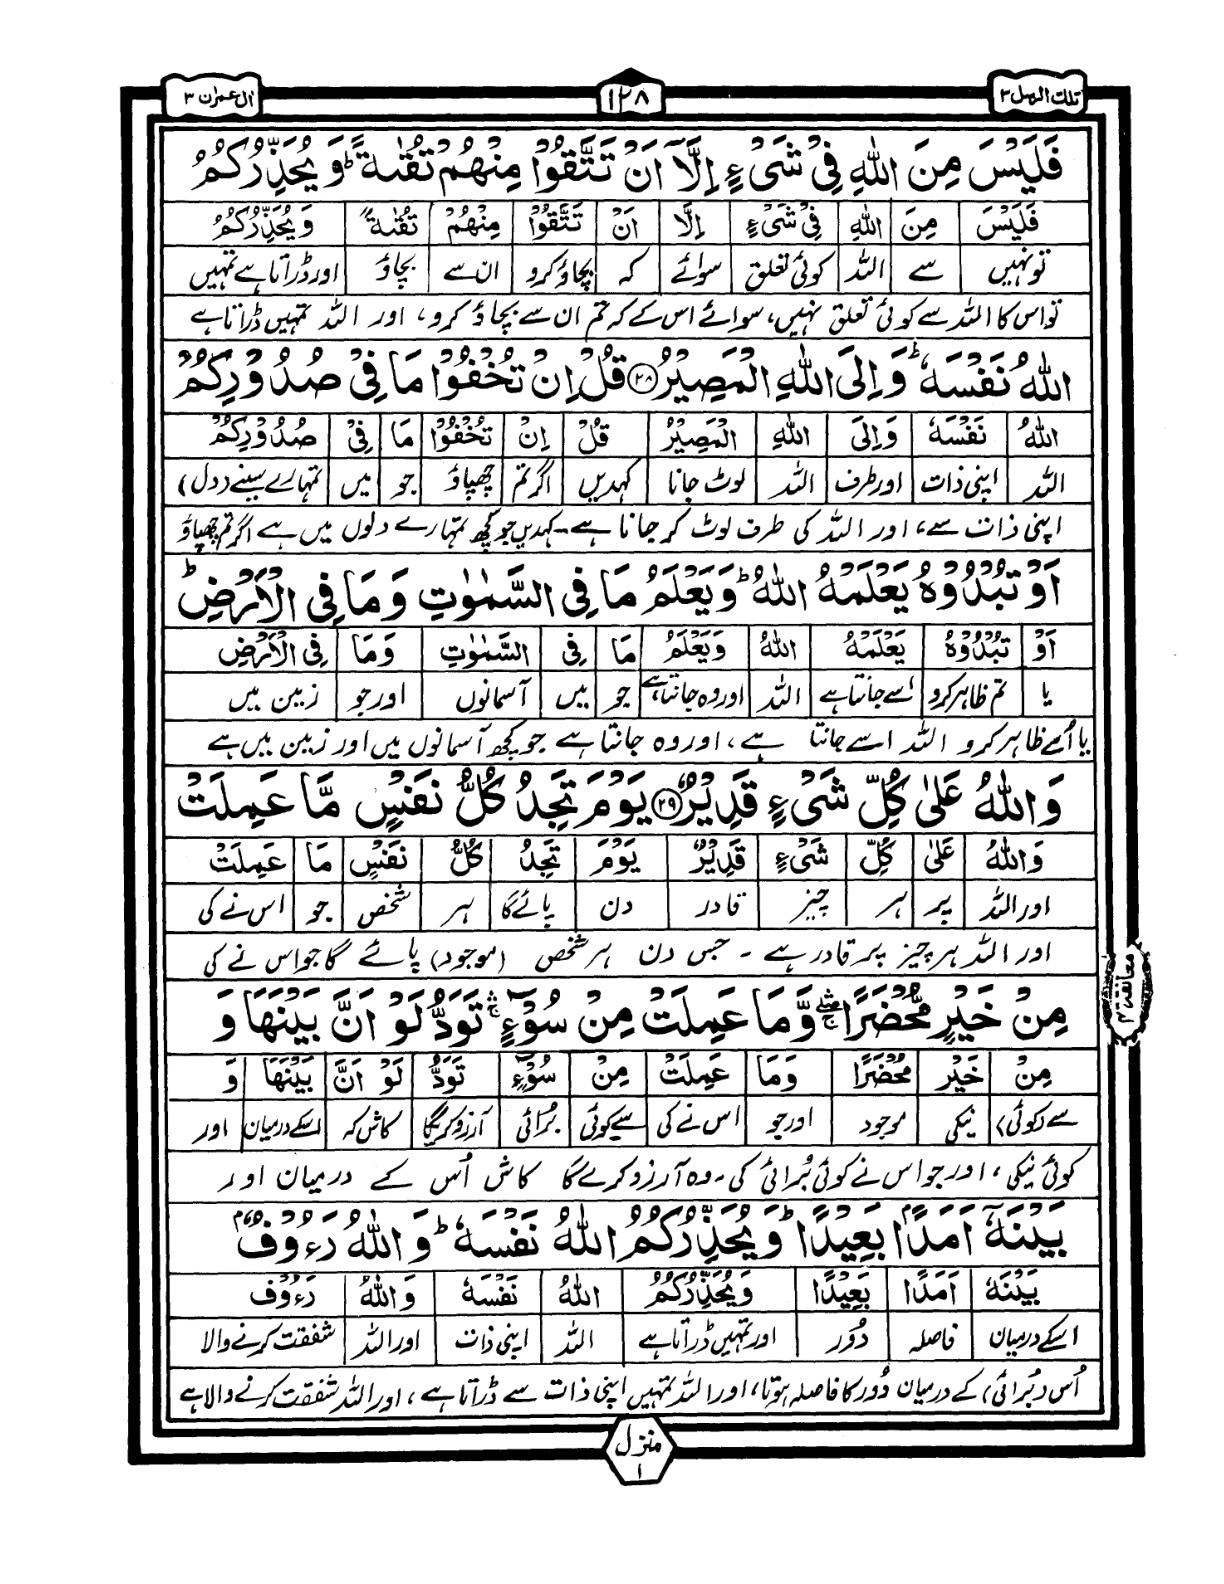 تلك الرسل ٣
١٢٨
ال عمران ٣
فَلَيْسَ مِنَ اللّٰهِ فِيْ شَيْءٍ اِلَّاۤ اَنْ تَتَّقُوْا مِنْهُمْ تُقٰىةً ؕ وَيُحَذِّرُكُمُ
فَلَيْسَ مِنَ اللّٰهِ فِيْ شَيْءٍ اِلَّا اَنْ تَتَّقُوْا مِنْهُمْ تُقٰىةً وَيُحَذِّرُكُمُ
تو نہیں سے اللہ کوئی تعلق سوائے کہ بچاؤ کرو ان سے بچاؤ اور ڈراتا ہے تمہیں
تو اس کا اللہ سے کوئی تعلق نہیں، سوائے اس کے کہ تم ان سے بچاؤ کرو، اور اللہ تمہیں ڈراتا ہے
اللّٰهُ نَفْسَهٗ ؕ وَاِلَى اللّٰهِ الْمَصِيْرُ ﴿۲۸﴾ قُلْ اِنْ تُخْفُوْا مَا فِيْ صُدُوْرِكُمْ
اللّٰهُ نَفْسَهٗ وَاِلَى اللّٰهِ الْمَصِيْرُ قُلْ اِنْ تُخْفُوْا مَا فِيْ صُدُوْرِكُمْ
اللہ اپنی ذات اور طرف اللہ لوٹ جانا کہدیں اگر تم چھپاؤ جو میں تمہارے سینے (دل)
اپنی ذات سے، اور اللہ کی طرف لوٹ کر جانا ہے۔ کہدیں جو کچھ تمہارے دلوں میں ہے اگر تم چھپاؤ
اَوْ تُبْدُوْهُ يَعْلَمْهُ اللّٰهُ ؕ وَيَعْلَمُ مَا فِي السَّمٰوٰتِ وَمَا فِي الْاَرْضِ ؕ
اَوْ تُبْدُوْهُ يَعْلَمْهُ اللّٰهُ وَيَعْلَمُ مَا فِي السَّمٰوٰتِ وَمَا فِي الْاَرْضِ
یا تم ظاہر کرو اُسے جانتا ہے اللہ اور وہ جانتا ہے جو میں آسمانوں اور جو زمین میں
یا اُسے ظاہر کرو اللہ اسے جانتا ہے، اور وہ جانتا ہے جو کچھ آسمانوں میں اور زمین میں ہے
وَاللّٰهُ عَلٰى كُلِّ شَيْءٍ قَدِيْرٌ ﴿۲۹﴾ يَوْمَ تَجِدُ كُلُّ نَفْسٍ مَّا عَمِلَتْ
وَاللّٰهُ عَلٰى كُلِّ شَيْءٍ قَدِيْرٌ يَوْمَ تَجِدُ كُلُّ نَفْسٍ مَا عَمِلَتْ
اور اللہ پر ہر چیز قادر دن پائے گا ہر شخص جو اس نے کی
اور اللہ ہر چیز پر قادر ہے ۔ جس دن ہر شخص (موجود) پائے گا جو اس نے کی
مِنْ خَيْرٍ مُّحْضَرًا ۛۚ وَّمَا عَمِلَتْ مِنْ سُوْٓءٍ ۛۚ تَوَدُّ لَوْ اَنَّ بَيْنَهَا وَ
مِنْ خَيْرٍ مُحْضَرًا وَمَا عَمِلَتْ مِنْ سُوْٓءٍ تَوَدُّ لَوْ اَنَّ بَيْنَهَا وَ
سے (کوئی) نیکی موجود اور جو اس نے کی سے کوئی بُرائی آرزو کریگا کاش کہ اسکے درمیان اور
کوئی نیکی، اور جو اس نے کوئی بُرائی کی۔ وہ آرزو کرے گا کاش اُس کے درمیان اور
معانقة ٢
بَيْنَهٗۤ اَمَدًۢا بَعِيْدًا ؕ وَيُحَذِّرُكُمُ اللّٰهُ نَفْسَهٗ ؕ وَاللّٰهُ رَءُوْفٌۢ
بَيْنَهٗ اَمَدًا بَعِيْدًا وَيُحَذِّرُكُمُ اللّٰهُ نَفْسَهٗ وَاللّٰهُ رَءُوْفٌ
اسکے درمیان فاصلہ دُور اور تمہیں ڈراتا ہے اللہ اپنی ذات اور اللہ شفقت کرنے والا
اُس (بُرائی) کے درمیان دُور کا فاصلہ ہوتا، اور اللہ تمہیں اپنی ذات سے ڈراتا ہے، اور اللہ شفقت کرنے والا ہے
منزل ١